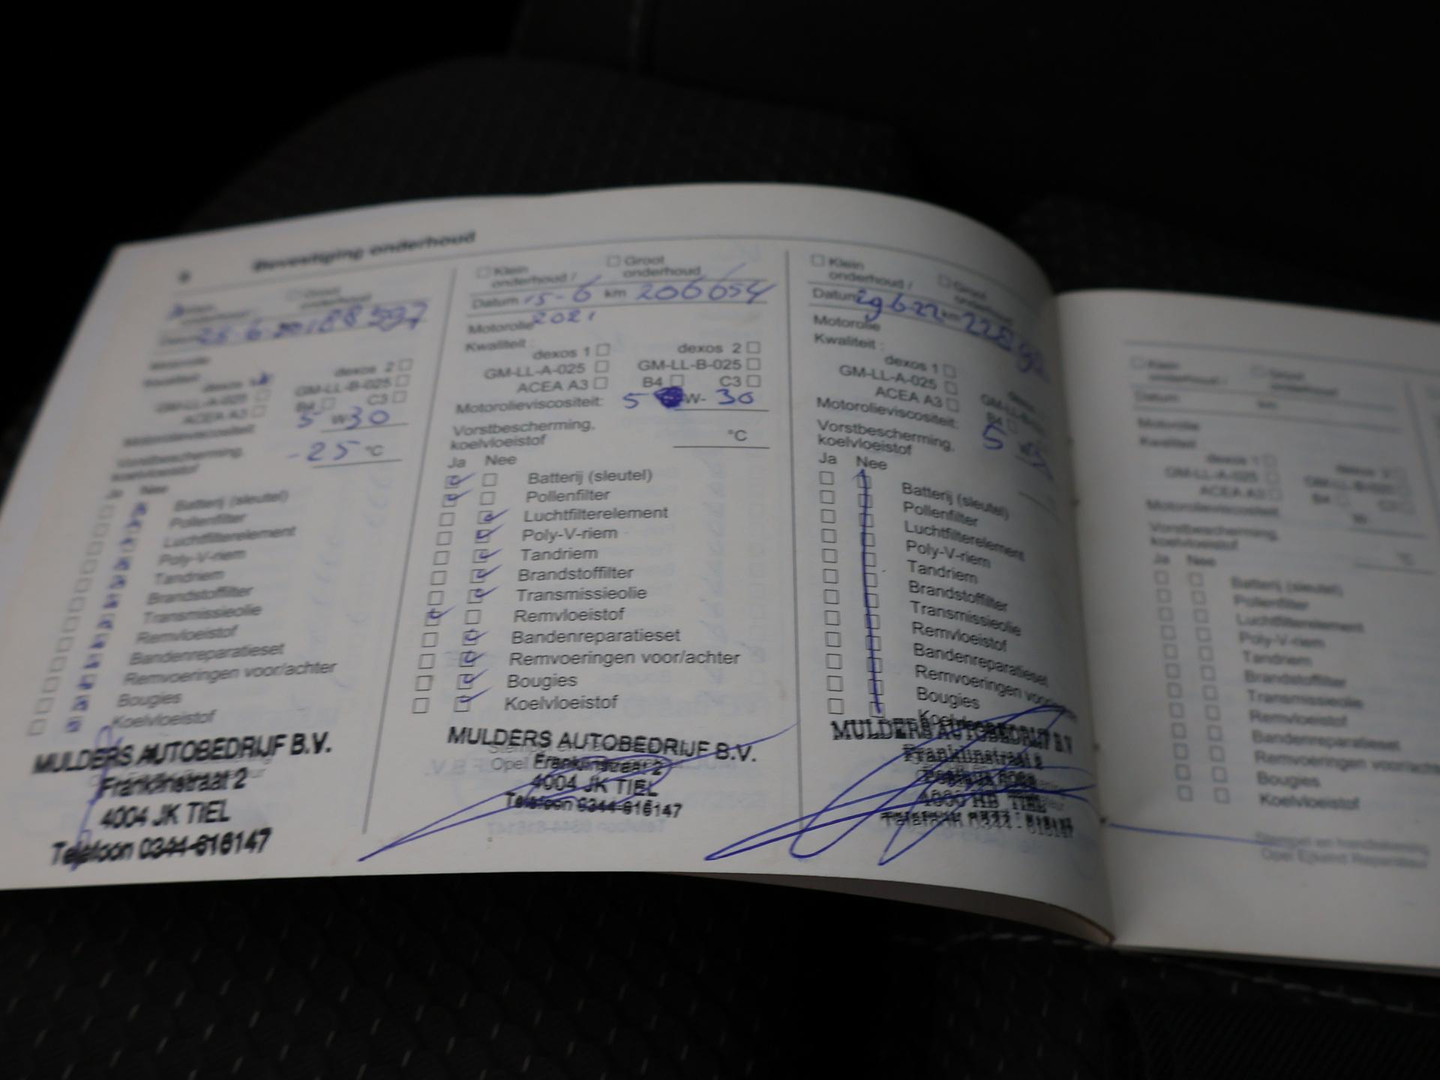 6 Bevestiging onderhoud
Klein onderhoud / Groot onderhoud
Datum
Motorolie
Kwaliteit
dexos 2
GM-LL-A-025 GM-LL-B-025
ACEA A3 B4 C3
Motorolieviscositeit: 5 W30
Vorstbescherming,
koelvloeistof -25 °C
Ja Nee
Batterij (sleutel)
Pollenfilter
Luchtfilterelement
Poly-V-riem
Tandriem
Brandstoffilter
Transmissieolie
Remvloeistof
Bandenreparatieset
Remvoeringen voor/achter
Bougies
Koelvloeistof
MULDERS AUTOBEDRIJF B.V.
Franklinstraat 2
4004 JK TIEL
Telefoon 0344-616147
Klein Groot
onderhoud / onderhoud
Datum 15-6 km 206654
Motorolie 2021
Kwaliteit :
dexos 1 dexos 2
GM-LL-A-025 GM-LL-B-025
ACEA A3 B4 C3
Motorolieviscositeit: 5 W- 30
Vorstbescherming,
koelvloeistof °C
Ja Nee
Batterij (sleutel)
Pollenfilter
Luchtfilterelement
Poly-V-riem
Tandriem
Brandstoffilter
Transmissieolie
Remvloeistof
Bandenreparatieset
Remvoeringen voor/achter
Bougies
Koelvloeistof
MULDERS AUTOBEDRIJF B.V.
Opel Franklinstraat 2
4004 JK TIEL
Telefoon 0344-616147
Klein Groot
onderhoud / onderhoud
Datum 29 6-22 km
Motorolie
Kwaliteit :
dexos 1
GM-LL-A-025
ACEA A3
Motorolieviscositeit: 5
Vorstbescherming,
koelvloeistof
Ja Nee
Batterij (sleutel)
Pollenfilter
Luchtfilterelement
Poly-V-riem
Tandriem
Brandstoffilter
Transmissieolie
Remvloeistof
Bandenreparatieset
Remvoeringen
Bougies
Koelvloeistof
MULDERS AUTOBEDRIJF B.V.
Franklinstraat 2
TIEL
Telefoon 0344 - 616147
Klein
onderhoud / onderhoud
Datum km
Motorolie
Kwaliteit
dexos 1 dexos 2
GM-LL-A-025
ACEA A3
Motorolieviscositeit
Vorstbescherming,
koelvloeistof °C
Ja Nee
Batterij (sleutel)
Pollenfilter
Luchtfilterelement
Poly-V-riem
Tandriem
Brandstoffilter
Transmissieolie
Remvloeistof
Bandenreparatieset
Remvoeringen
Bougies
Koelvloeistof
Stempel en handtekening
Opel